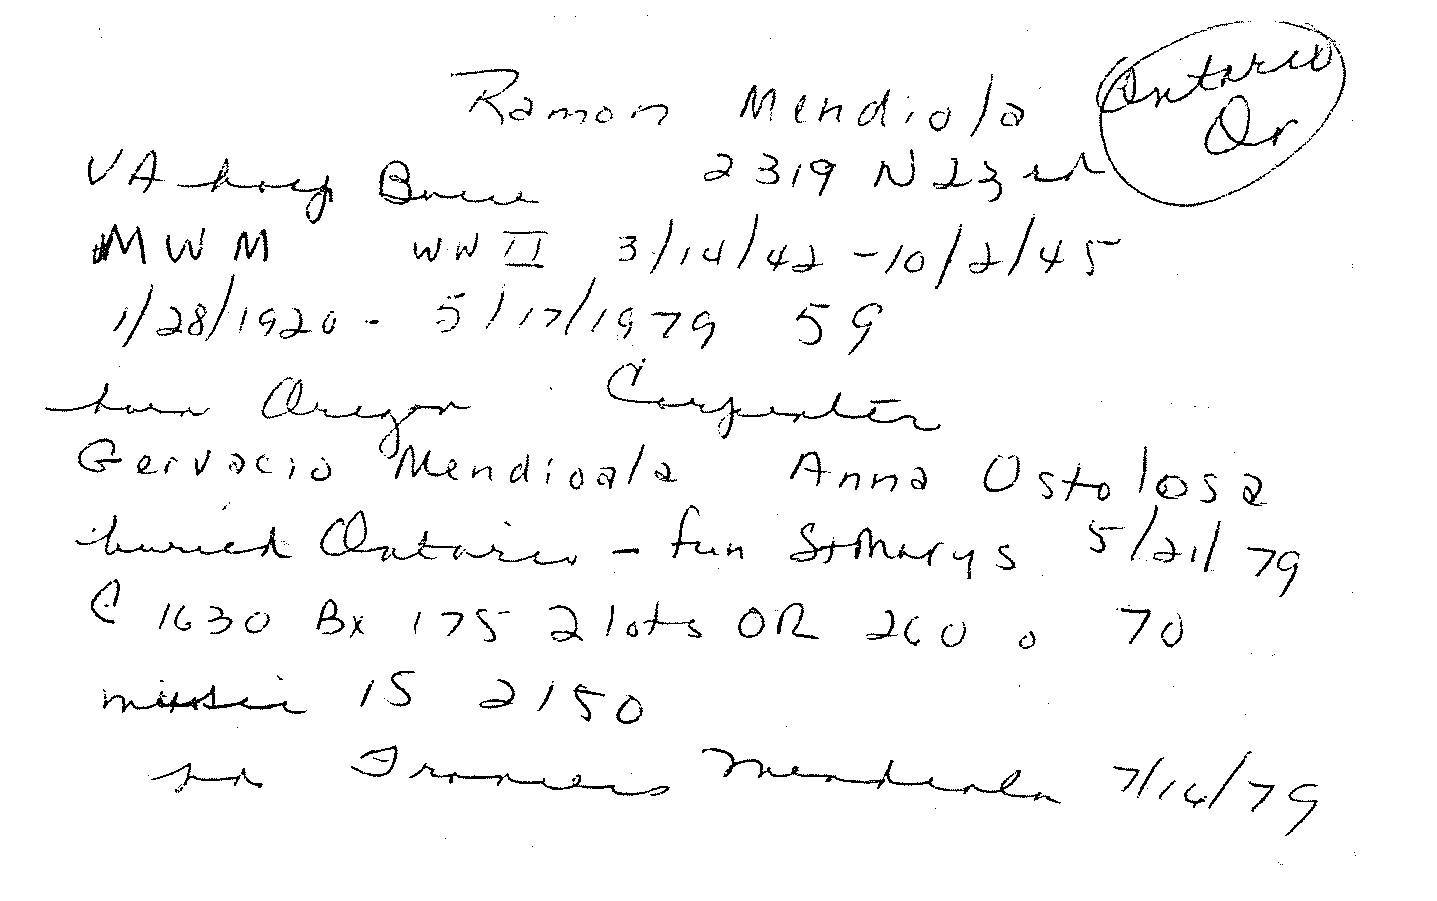 Ramon Mendiola Ontario Or
VA hosp Boise 2319 N 23rd
MWM WW II 3/14/42 - 10/2/45
1/28/1920 - 5/17/1979 59
born Oregon Carpenter
Gervacio Mendioala Anna Ostolosa
buried Ontario - fun St Marys 5/21/79
C 1630 Bx 175 2 lots OR 260 0 70
15 2150
pd Frances Mendiola 7/16/79